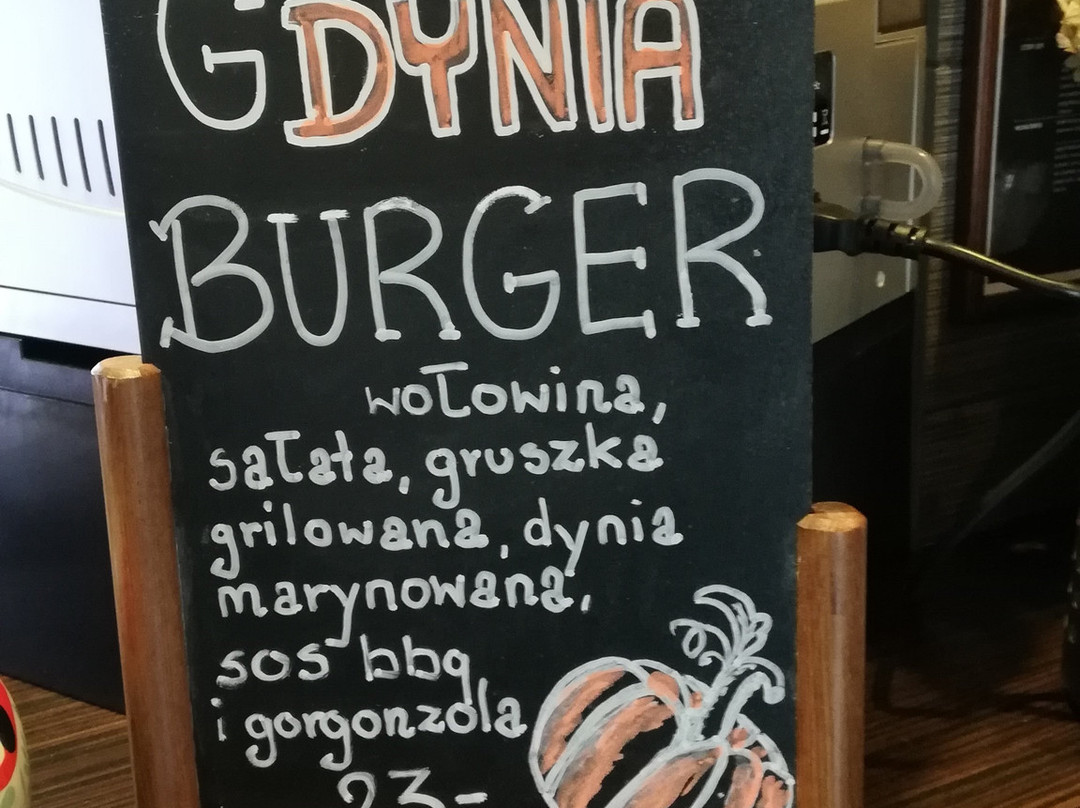 GDYNIA
BURGER
wołowina,
sałata, gruszka
grilowana, dynia
marynowana,
sos bbq
i gorgonzola
23-